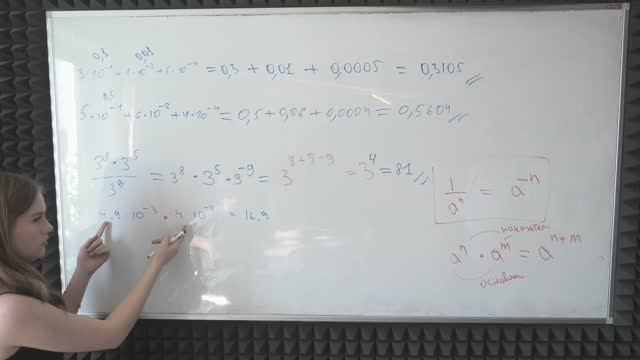 0,3 0,01
3·10⁻¹+1·10⁻²+5·10⁻⁴ = 0,3 + 0,01 + 0,0005 = 0,3105
0,5
5·10⁻¹+6·10⁻²+4·10⁻⁴ = 0,5+0,06+0,0004 = 0,5604
3⁸·3⁵/3⁹ = 3⁸·3⁵·3⁻⁹ = 3⁸⁺⁵⁻⁹ = 3⁴ = 81
4,9 10⁻³ · 4 10⁻ = 16,9
1/aⁿ = a⁻ⁿ
показатели
aⁿ · aᵐ = aⁿ⁺ᵐ